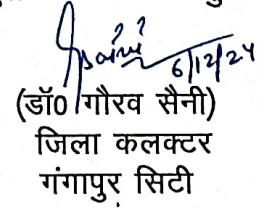 6/12/24
(डॉ0 गौरव सैनी)
जिला कलक्टर
गंगापुर सिटी